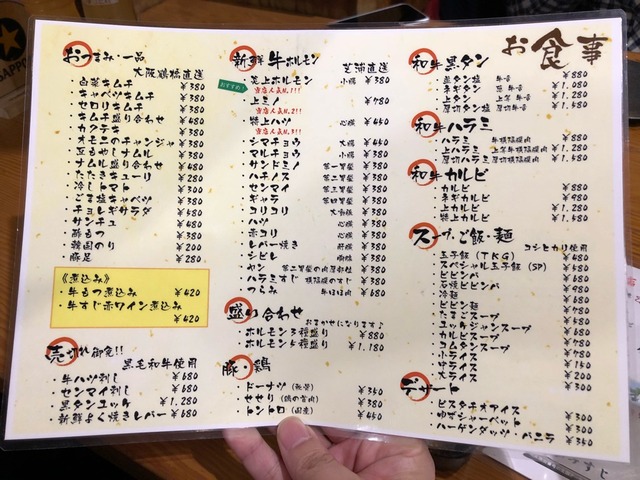 お食事
おつまみ・一品
大阪鶴橋直送
・白菜キムチ ¥380
・キャベツキムチ ¥380
・セロリキムチ ¥380
・キムチ盛り合わせ ¥480
・カクテキ ¥380
・オモニのチャンジャ ¥380
・豆もやしナムル ¥380
・ナムル盛り合わせ ¥480
・たたきキューリ ¥380
・冷しトマト ¥380
・ごま塩キャベツ ¥380
・チョレギサラダ ¥580
・サンチュ ¥480
・酢もつ ¥380
・韓国のり ¥200
・豚足 ¥280
《煮込み》
・牛もつ煮込み ¥420
・牛すじ赤ワイン煮込み
¥420
売切れ御免!!
黒毛和牛使用
・牛ハツ刺し ¥680
・センマイ刺し ¥680
・黒タンユッケ ¥1.280
・新鮮よく焼きレバー ¥680
新鮮 牛ホルモン
芝浦直送
おすすめ!
・炎上ホルモン 小腸 ¥380
当店人気No.1!!
・上ミノ ¥780
当店人気No.2!!
・特上ハツ 心臓 ¥450
当店人気No.3!!
・シマチョウ 大腸 ¥450
・マルチョウ 小腸 ¥380
・サンドミノ 第一胃袋 ¥380
・ハチノス 第二胃袋 ¥380
・センマイ 第三胃袋 ¥380
・ギャラ 第四胃袋 ¥380
・コリコリ 大動脈 ¥380
・ハツ 心臓 ¥380
・赤コリ 心臓 ¥380
・レバー焼き 肝臓 ¥380
・シビレ 胸腺 ¥380
・ヤン ¥580
・ハラミすじ 横隔膜のすじ ¥380
・つらみ 牛ほほ肉 ¥680
盛り合わせ
おまかせになります♪
・ホルモン3種盛り ¥880
・ホルモン5種盛り ¥1.180
豚・鶏
・ドーナツ ¥350
・せせり (鶏の首肉) ¥380
・トントロ (国産) ¥450
和牛黒タン
・並タン塩 牛舌 ¥880
・ネギタン 並牛舌 ¥1.080
・上タン 上等牛舌 ¥1.280
・厚切タン塩 厚切牛舌 ¥1.580
和牛ハラミ
・ハラミ 牛横隔膜肉 ¥880
・上ハラミ 上等牛横隔膜肉 ¥1.380
・厚切ハラミ 厚切横隔膜肉 ¥1.580
和牛カルビ
・カルビ ¥880
・ネギカルビ ¥980
・上カルビ ¥1.280
・特上カルビ ¥1.580
スープ・ご飯・麺
コシヒカリ使用
・玉子飯 (TKG) ¥480
・スペシャル玉子飯 (SP) ¥580
・ビビンバ ¥680
・石焼ビビンバ ¥780
・冷麺 ¥680
・ビビン麺 ¥680
・たまごスープ ¥380
・ユッケジャンスープ ¥480
・カルビスープ ¥680
・コムタンスープ ¥480
・小ライス ¥150
・中ライス ¥200
・大ライス ¥300
デザート
・ピスタチオアイス ¥300
・ゆずシャーベット ¥300
・ハーゲンダッツ・バニラ ¥350